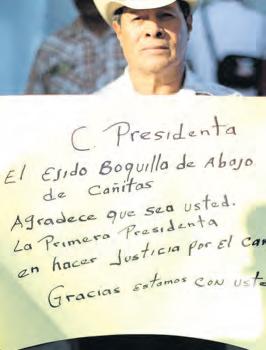 C. Presidenta
El Esido Boquilla de Abajo
de Cañitas
Agradece que sea usted.
La Primera Presidenta
en hacer Justicia por el
Gracias estamos con